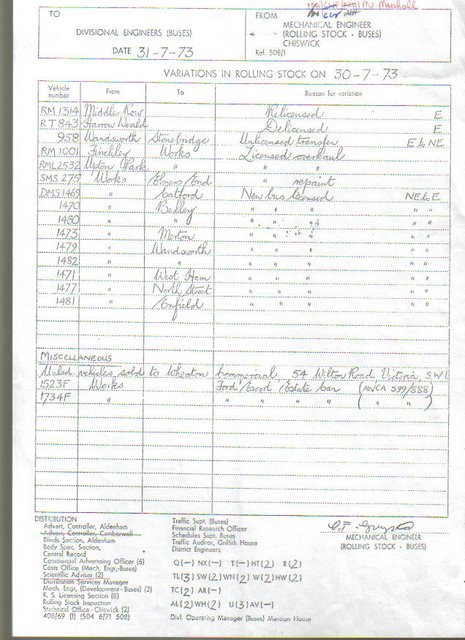 TO
FROM
Mr Marshall
MECHANICAL ENGINEER
DIVISIONAL ENGINEERS (BUSES)
(ROLLING STOCK - BUSES)
CHISWICK
DATE 31-7-73
Ref. 508/1
VARIATIONS IN ROLLING STOCK ON 30-7-73
Vehicle number From To Reason for variation
RM 1314 Middle Row Relicensed E
RT 843 Harrow Weald Delicensed E
958 Wandsworth Stonebridge Unlicensed transfer E to NE
RM 1001 Finchley Works Licensed overhaul
RML 2532 Upton Park " " "
SMS 275 Works Elmers End " repaint
DMS 1469 " Catford New bus licensed NE to E
1470 " Bexley " " " " "
1480 " " " " " " "
1473 " Merton " " " " "
1479 " Wandsworth " " " " "
1482 " " " " " " "
1471 " West Ham " " " " "
1477 " North Street " " " " "
1481 " Enfield " " " " "
MISCELLANEOUS
vehicles sold to Wheaton Commercial, 54 Wilton Road Victoria S.W.1
1523F Works Ford Escort Estate Car
1734F " " " " "
DISTRIBUTION
Advert. Controller, Aldenham
Advert. Controller, Camberwell
Blinds Section, Aldenham
Body Spec. Section,
Central Record
Commercial Advertising Officer (6)
Costs Office (Mech. Engr.-Buses)
Scientific Adviser (2)
Distribution Services Manager
Mech. Engr. (Development - Buses) (2)
R. S. Licensing Section (6)
Rolling Stock Inspection
Statistical Office - Chiswick (2)
408/69 (1) (504 6/71 508)
Traffic Supt. (Buses)
Financial Research Officer
Schedules Supt. Buses
Traffic Auditor, Griffith House
District Engineers
Q(—) NX(—) T(—) HT(2) R(2)
TL(3) SW(2) WN(2) W(2) HW(2)
TC(2) AR(—)
AL(2) WH(2) U(3) AV(—)
Divl. Operating Manager (Buses) Mansion House
MECHANICAL ENGINEER
(ROLLING STOCK - BUSES)